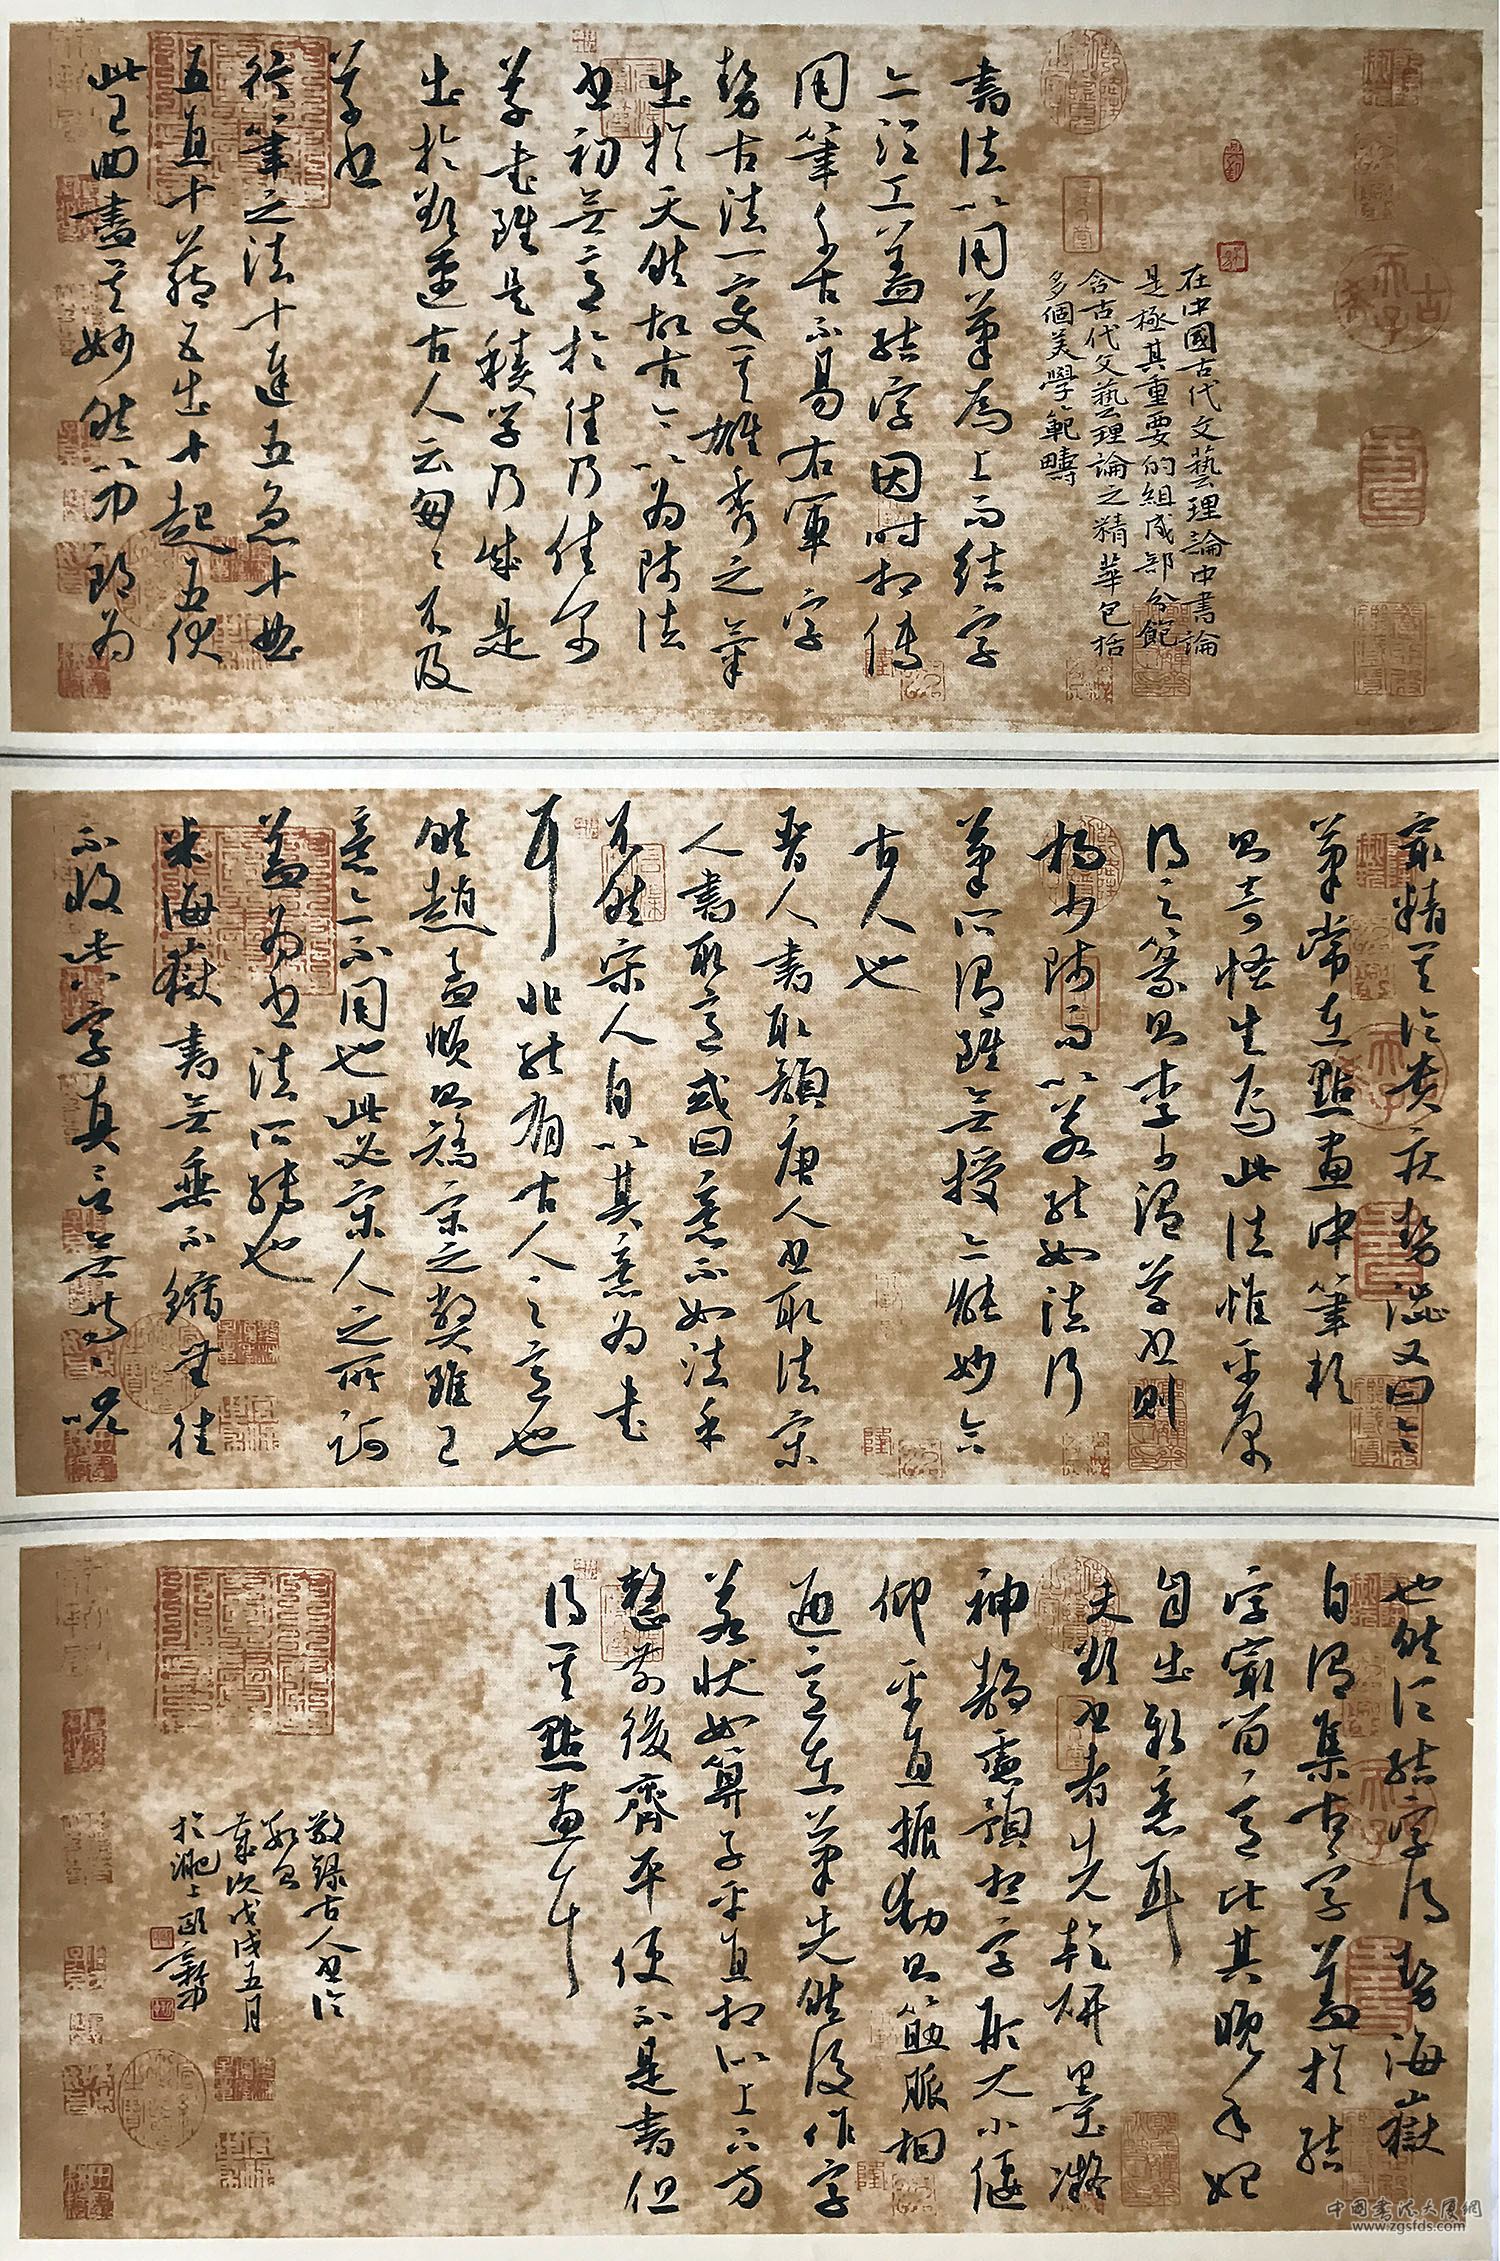 在中國古代文藝理論中書論
是極其重要的組成部分飽
含古代文藝理論之精華包括
多個美學範疇
書法以用筆為上而結字
亦須工蓋結字因時相傳
用筆千古不易右軍字
勢古法一變其雄秀之氣
出於天然故古今以為師法
書初無意於佳乃佳爾
草書雖是積學乃成然是
出於欲速古人云匆匆不及
草書
行筆之法十遲五急十曲
五直十藏五出十起五伏
此已曲盡其妙然以中郎為
最精其論貴疾勢澀又曰令
筆常在點畫中筆軟
則奇怪生焉此法惟平原
得之篆則李少溫草書則
楊少師而以若能如法行
筆所謂雖無授亦能妙合
古人也
晉人書取韻唐人書取法宋
人書取意或曰意不如法乎
不然宋人自以其意為書
耳非能有古人之意也
然趙孟頫則矯宋之弊雖己
意亦不用也此必宋人之所訶
蓋為書法所轉也
米海嶽書無垂不縮無往
不收此八字真言無等等咒
也然須結字得勢海嶽
自謂集古字蓋於結
字最留意比其晚年始
自出新意耳
夫欲書者先乾研墨凝
神靜慮預想字形大小偃
仰平直振動則筋脈相
連意在筆先然後作字
若狀如算子平直相似上下方
整前後齊平便不是書但
得其點畫耳
敬錄古人書論
數則
歲次戊戌五月
於淝上
中國書法大厦網
www.zgsfds.com